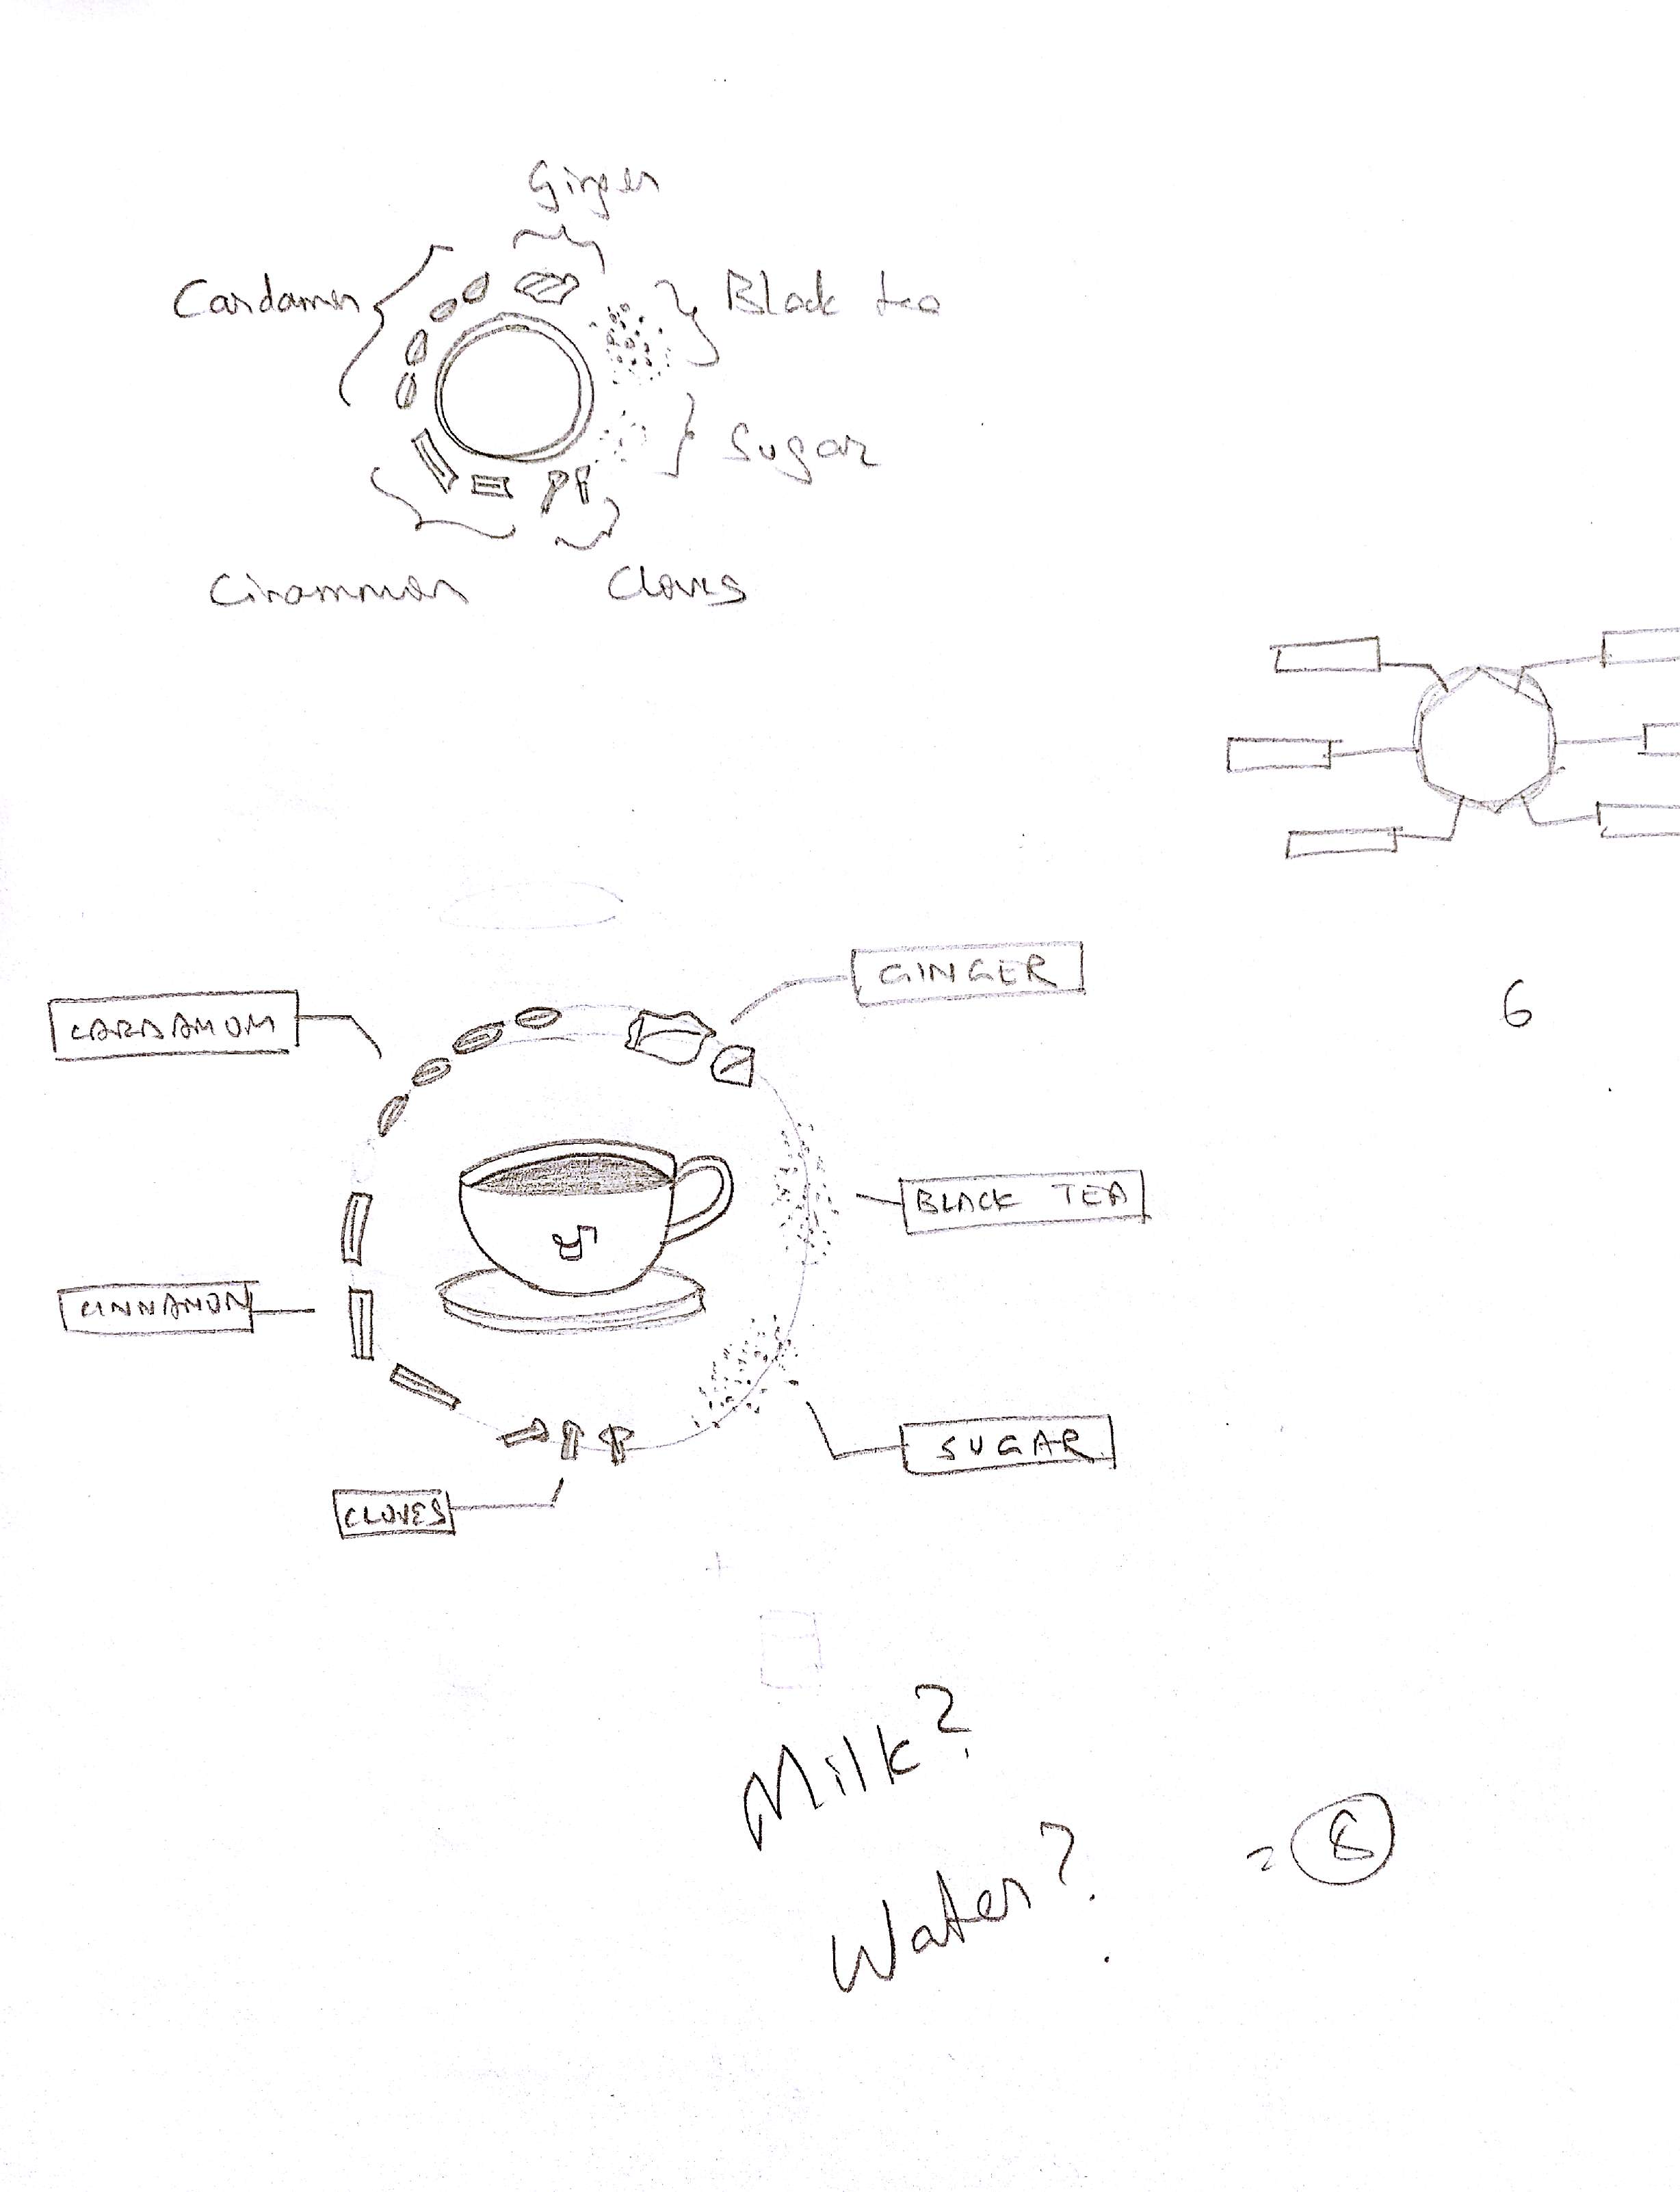 Ginger
Cardamon
Black tea
Sugar
Cinammon
Cloves
GINGER
CARDAMOM
6
BLACK TEA
CINNAMON
SUGAR
CLOVES
Milk?
Water?
= 8